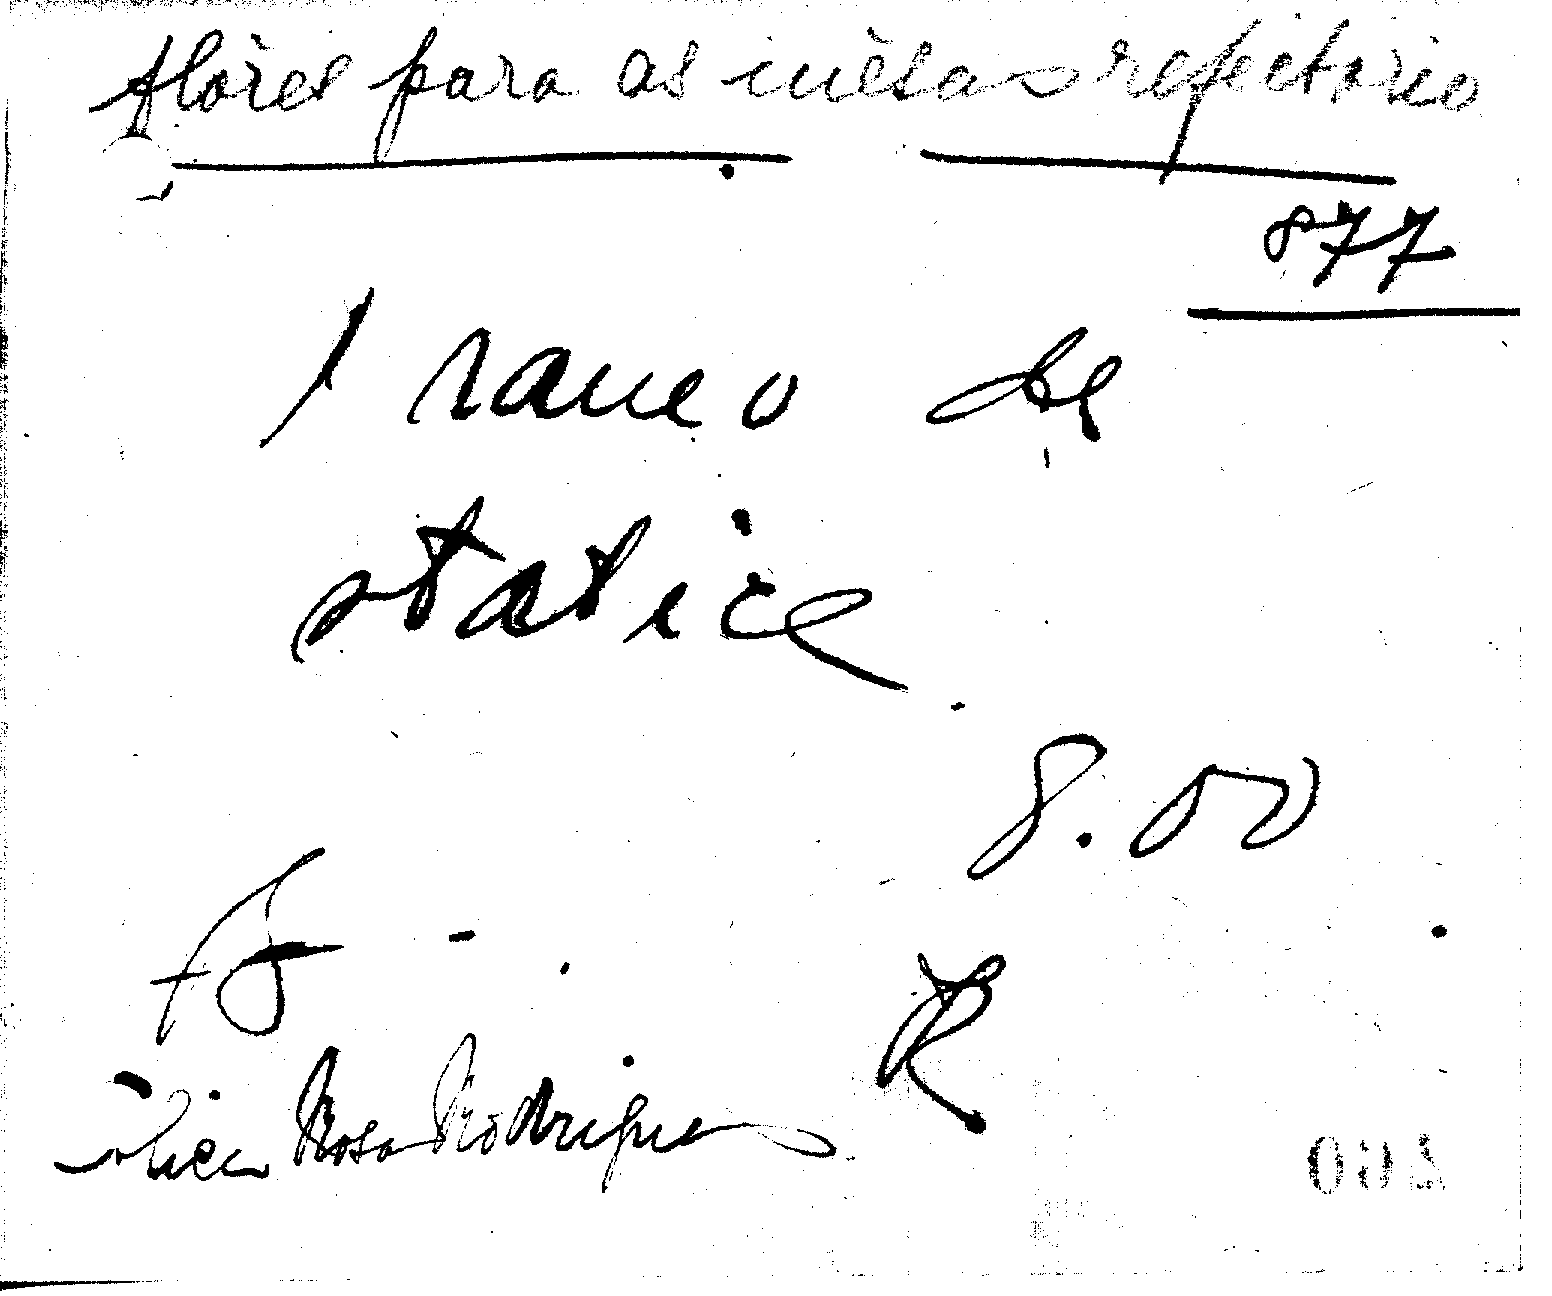 flôres para as mêsas refeitorio
877
1 ramo de
statice
8.00
Rosa Rodrigues